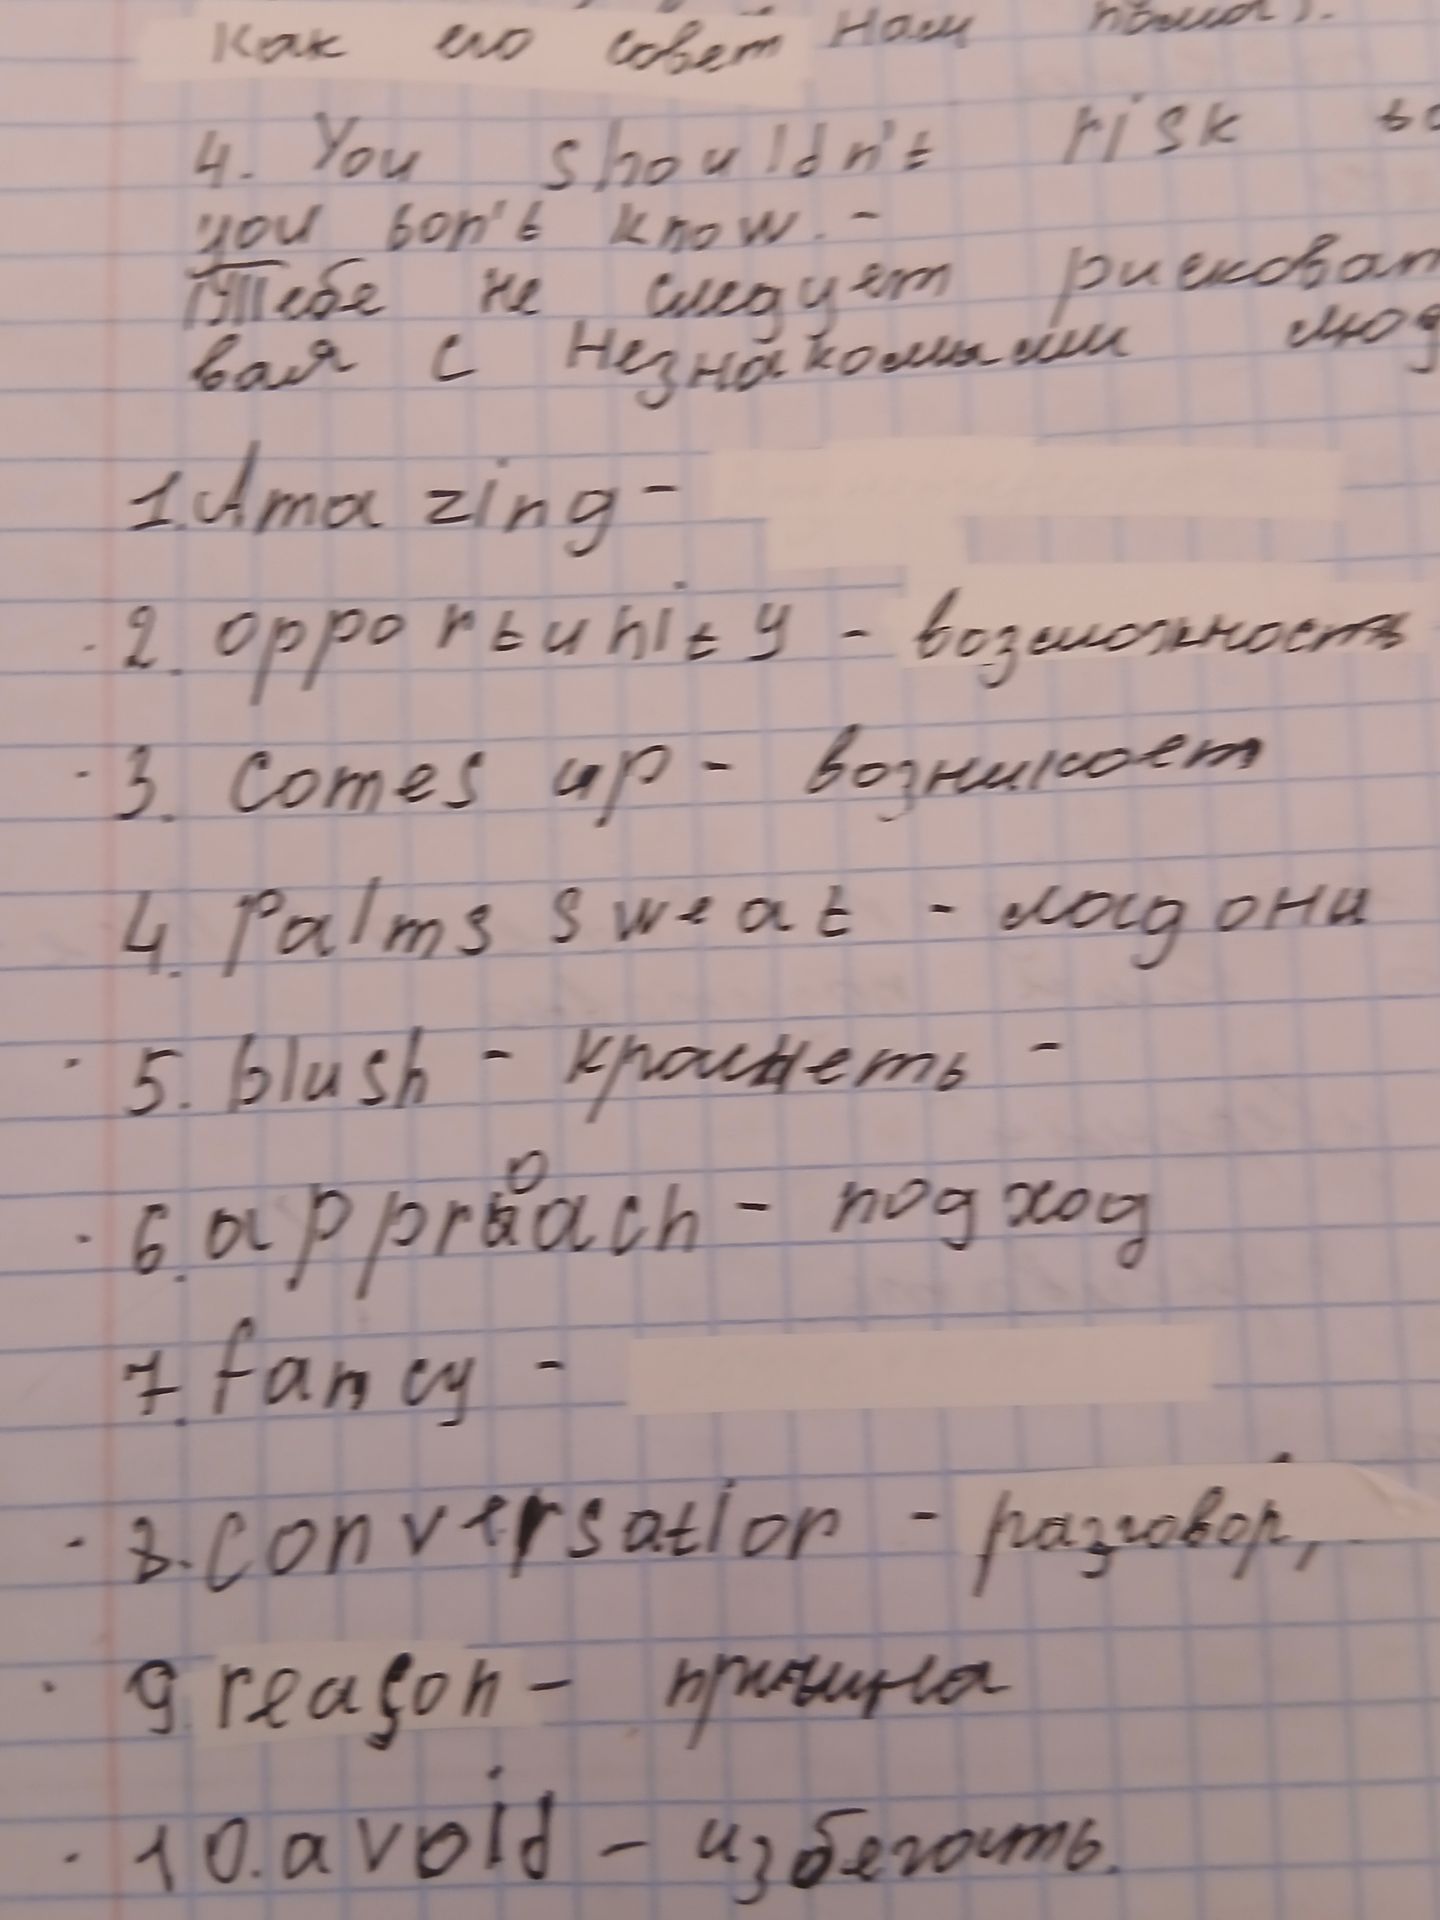 Как его совет нам
4. You shouldn't risk
you don't know. -
Тебе не следует рисковат
вая с Незнакомыми люд
1. Amazing -
2. opportunity - возможность
3. Comes up - возникает
4. Palms sweat - ладони
5. blush - краснеть -
6. approach - подход
7. fancy -
8. Conversation - разговор,
9 reason - причина
10. avoid - избегать.